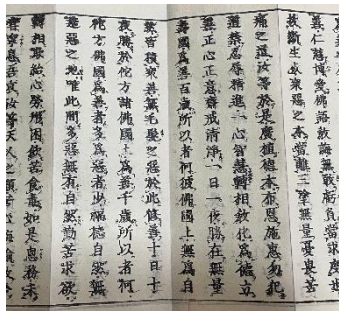 善仁慈博愛佛語教誨無敢虧負當求度世
拔斷生死衆惡之本當離三塗無量憂畏苦
痛之道汝等於是廣植德本布恩施惠勿犯
道禁忍辱精進一心智慧轉相教化為德立
善正心正意齋戒清淨一日一夜勝在無量
壽國為善百歲所以者何彼佛國土無為自
然皆積衆善無毛髮之惡於此修善十日十
夜勝於佗方諸佛國土為善千歲所以者何
佗方佛國為善者多為惡者少福德自然無
造惡之地唯此間多惡無有自然勤苦求欲
轉相殆心勞形困飲苦食毒如是惡務未
嘗寧息吾哀汝等天人之類苦心誨